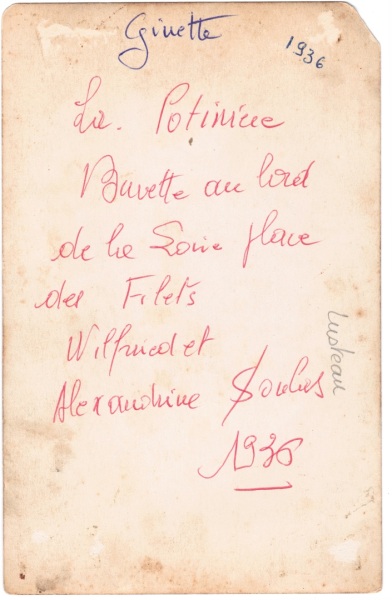 Ginette
1936
La. Potinière
Buvette au bord
de la Loire place
des Filets
Wilfried et
Alexandrine
1936
Lusteau